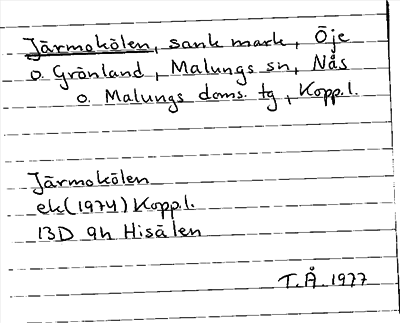 Järmokölen, sank mark, Öje
o. Grönland, Malungs sn, Nås
o. Malungs doms. tg, Kopp.l.
Järmokölen
ek (1974) Kopp.l.
13D 9h Hisälen
T.Å. 1977